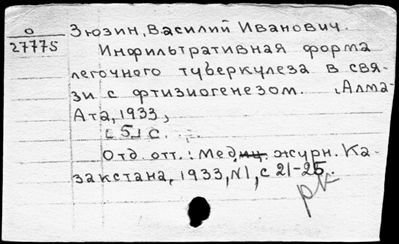 О
27775
Зюзин, Василий Иванович.
Инфильтративная форма
легочного туберкулеза в свя-
зи с фтизиогенезом. Алма-
Ата, 1933,
[5] с.
Отд. отт.: Мед. журн. Ка-
закстана, 1933, №1, с 21-25.
рк